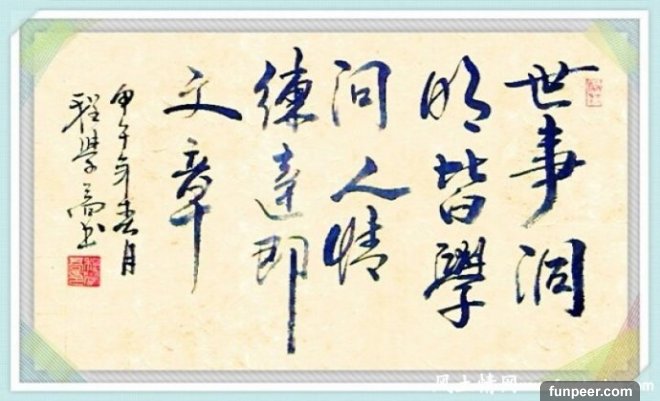 世事洞
明皆學
问人情
練達即
文章
甲午年春月
程學书
funpeer.com